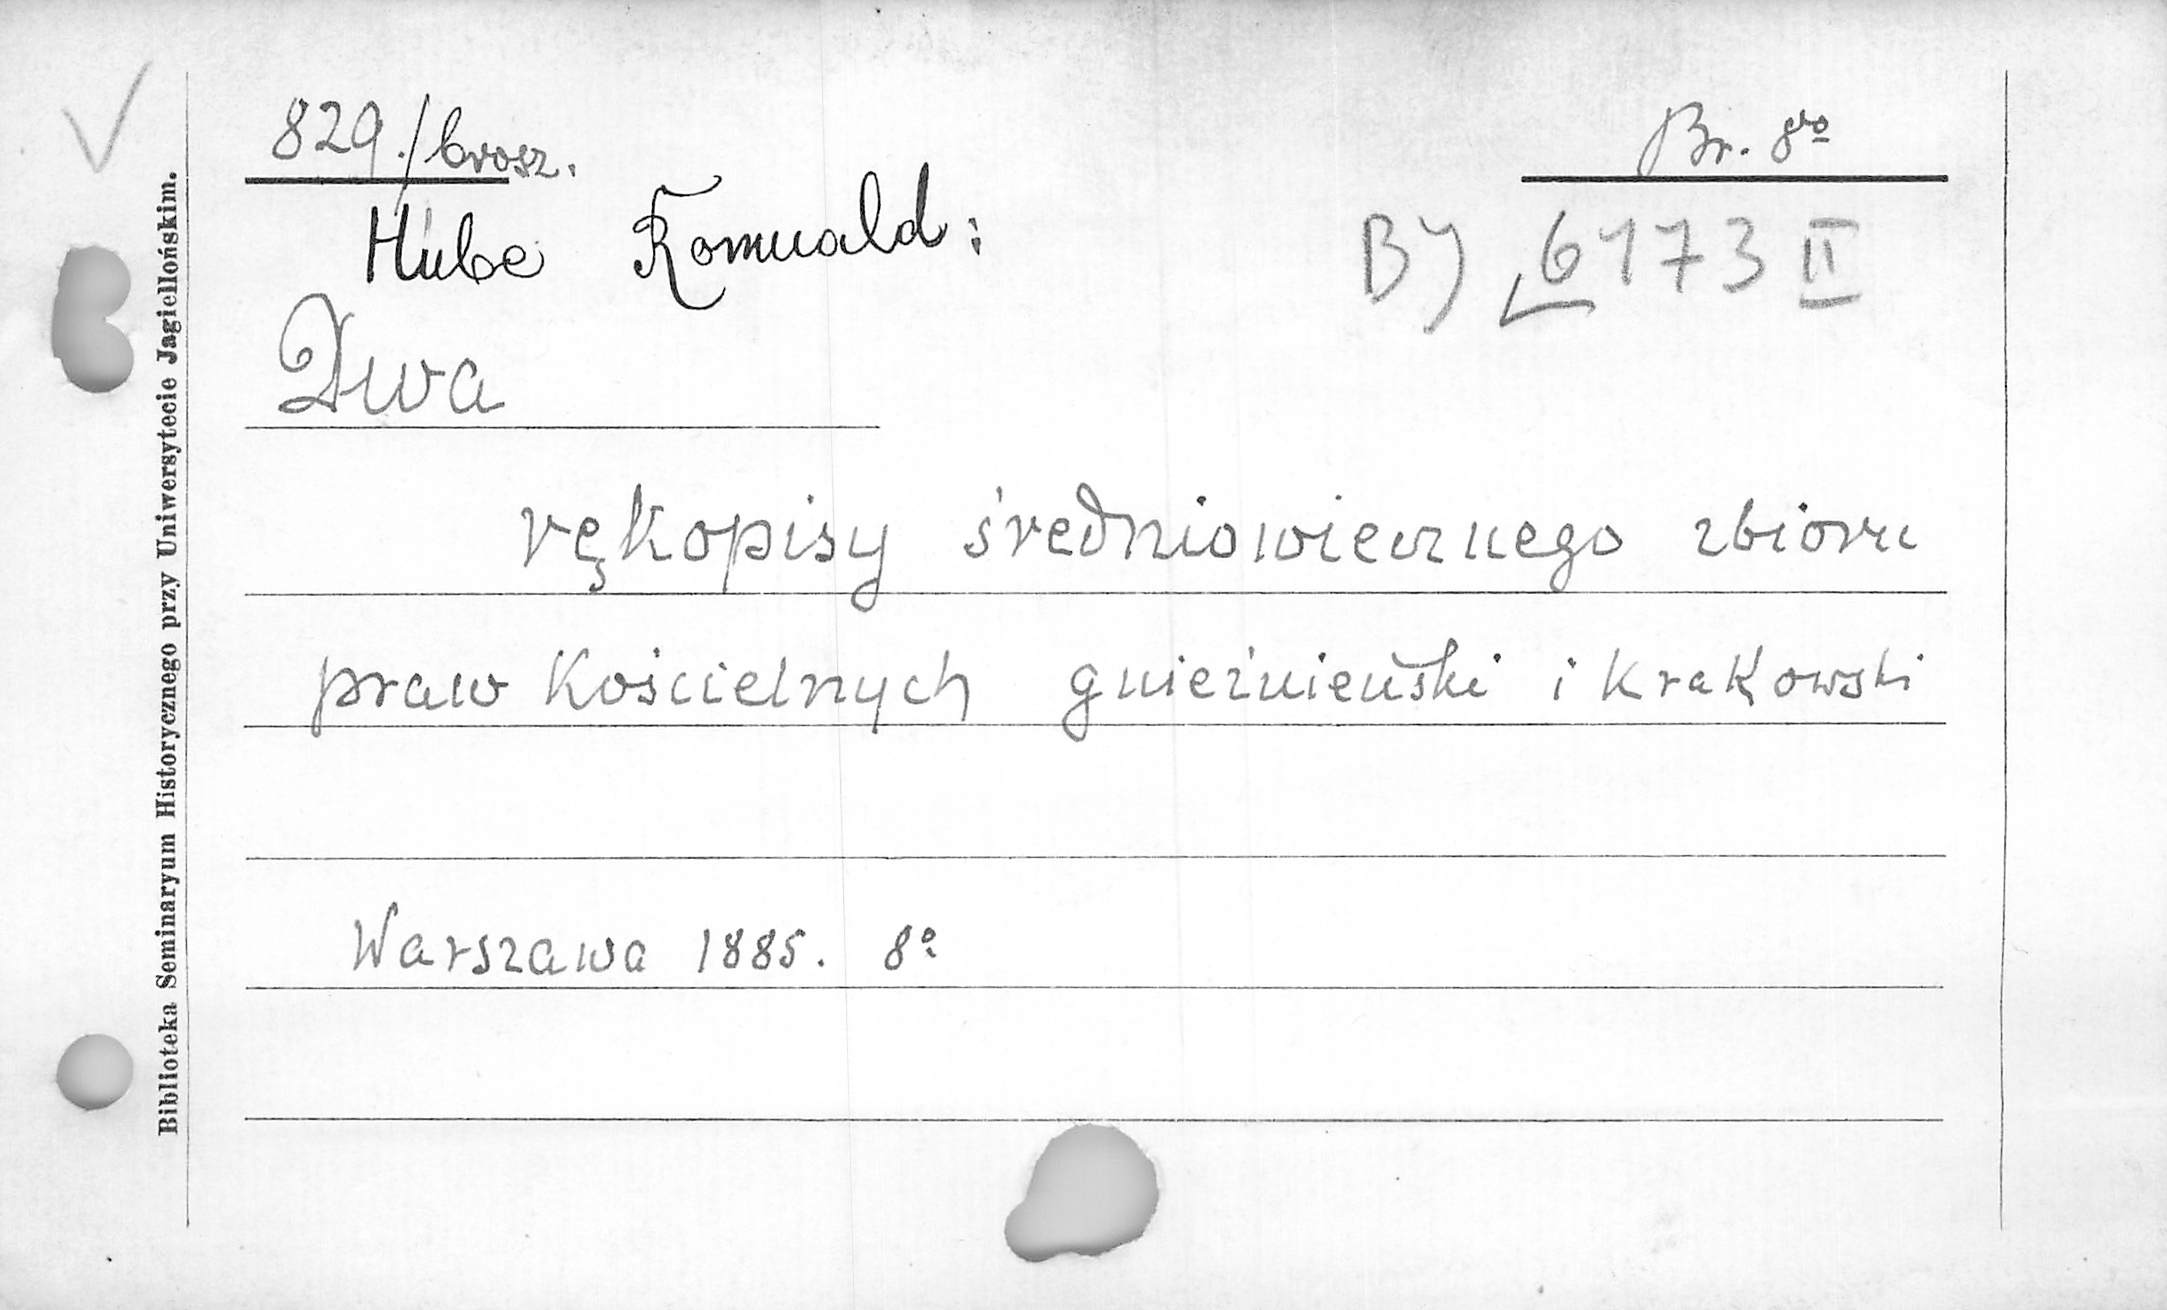 829./brosz.
Br. 8vo
Hube Romuald:
BJ 6173 II
Dwa
rękopisy średniowiecznego zbioru
praw kościelnych gnieźnieński i krakowski
Warszawa 1885. 8o
Biblioteka Seminaryum Historycznego przy Uniwersytecie Jagiellońskim.